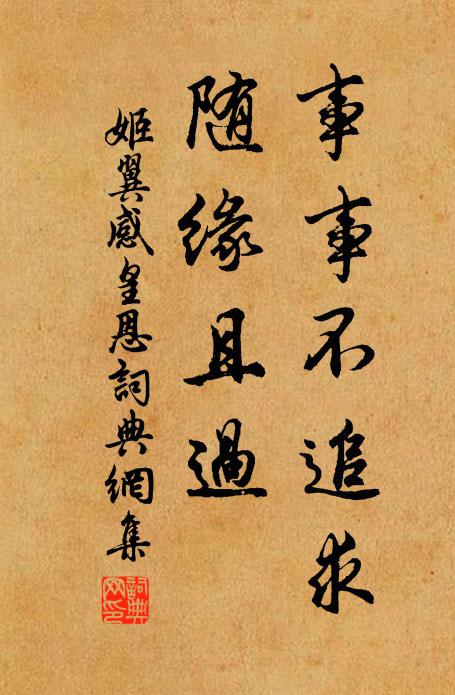 事事不追求
随缘且過
姬翼感皇恩詞典網集
詞典網印